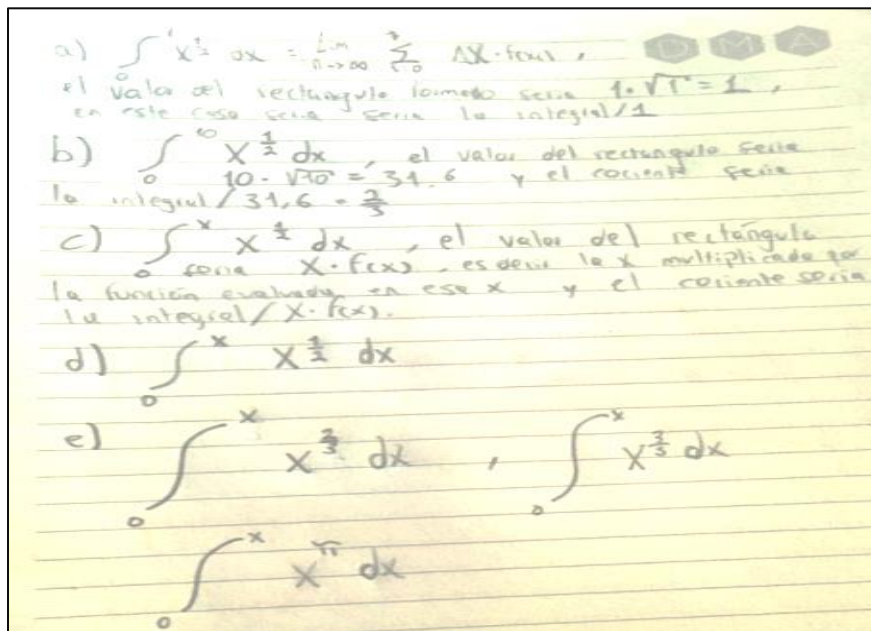 a) ∫₀¹ x^½ dx = Lim n→∞ Σ ΔX · f(x),
DMA
el valor del rectangulo formado seria 1·√1 = 1,
en este caso seria seria la integral/1
b) ∫₀¹⁰ X^½ dx, el valor del rectangulo seria
10·√10 = 31.6 y el cociente seria
la integral/31,6 = 2/3
c) ∫₀ˣ x^½ dx, el valor del rectángulo
seria X·f(x), es decir la x multiplicada por
la función evaluada en ese x y el cociente seria
la integral/X·f(x).
d) ∫₀ˣ X^½ dx
e) ∫₀ˣ X^⅔ dx, ∫₀ˣ X^⅗ dx
∫₀ˣ X^π dx